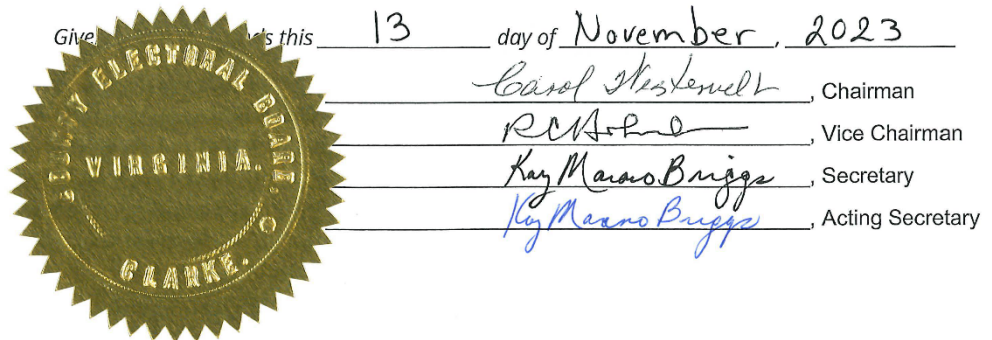 Give s this 13 day of November, 2023
Carol Westervelt, Chairman
, Vice Chairman
Kay Marano Briggs, Secretary
Kay Marano Briggs, Acting Secretary
COUNTY ELECTORAL BOARD.
VIRGINIA.
CLARKE.